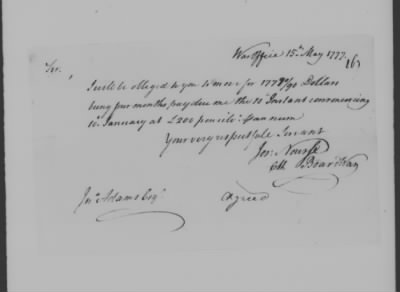 War Office 15th May 1777.
Sir,
I will be obliged to you to move for 177 70/90 Dollars
being four months pay due me the 10 Instant commencing
10 January at £200 pencil a pannum
Your very respectfule Servant
Jos: Nourse
Board War
Jno Adams Esqr
Agreed